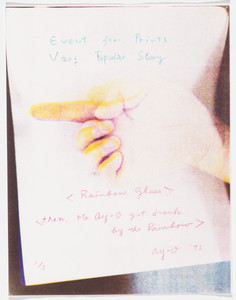 Event for Prints
Very Popular Story
< Rainbow Glass >
< Then Mr. Ay-O got drunk
by the Rainbow >
Ay-O '73
1/2